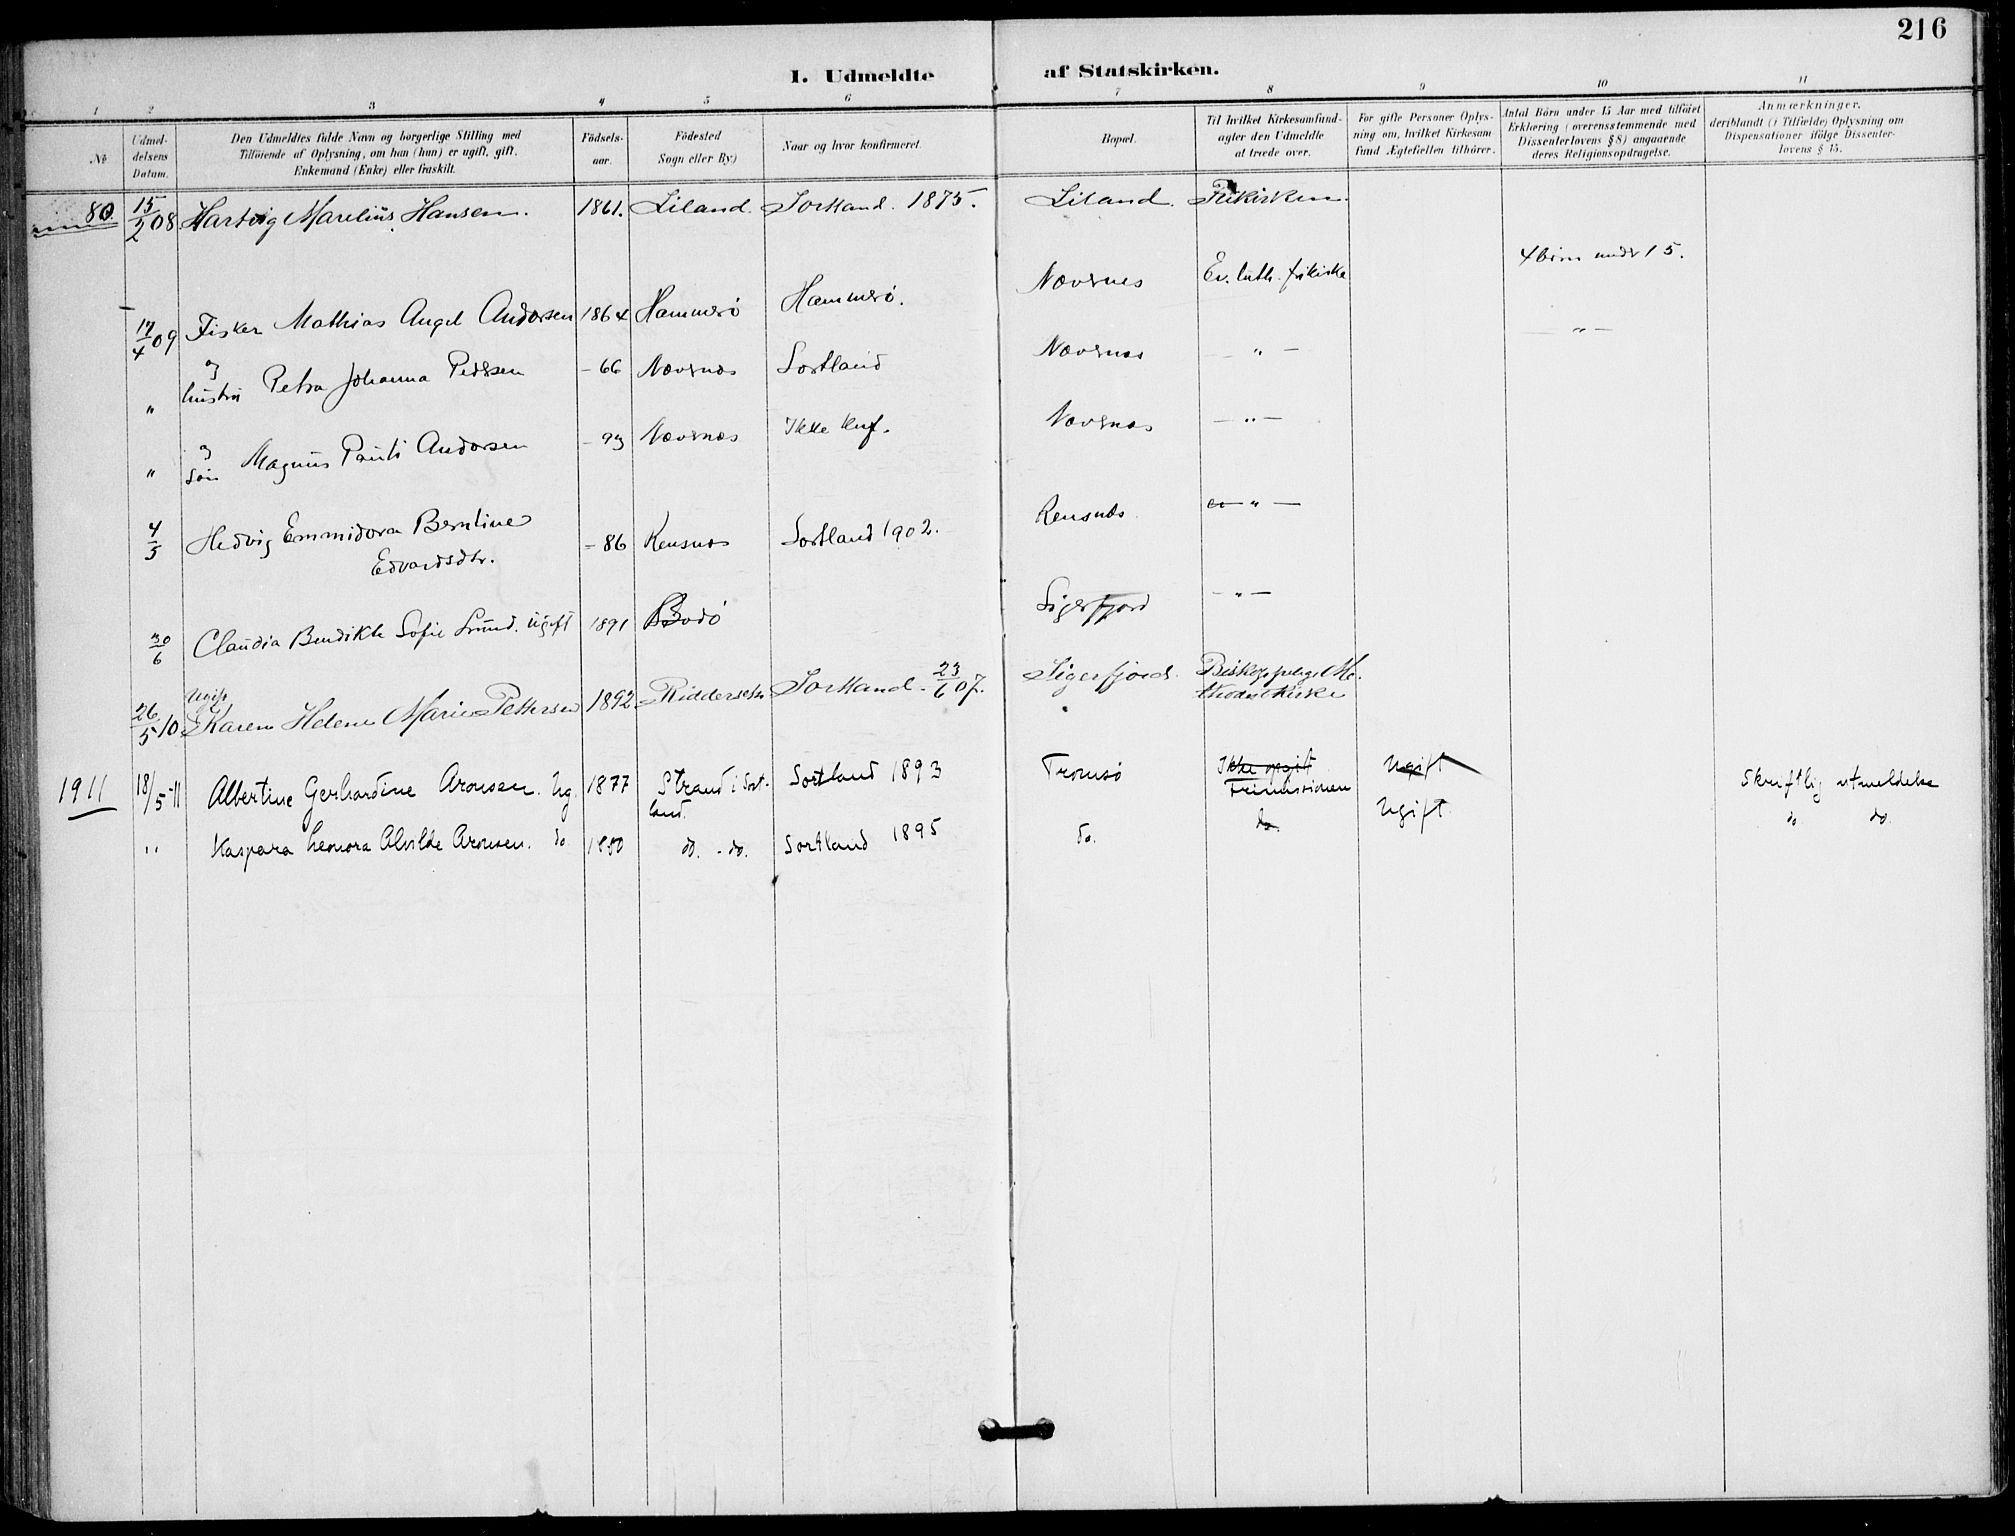 216
1. Udmeldte af Statskirken.
1 2 3 4 5 6 7 8 9 10 11
№
Udmel-
delsens
Datum.
Den Udmeldtes fulde Navn og borgerlige Stilling med
Tilføiende af Oplysning, om han (hun) er ugift, gift,
Enkemand (Enke) eller fraskilt.
Fødsels-
aar.
Födested
Sogn eller By)
Naar og hvor konfirmeret.
Bopæl.
Til hvilket Kirkesamfund-
agter den Udmeldte
at træde over.
For gifte Personer Oplys-
ning om, hvilket Kirkesam
fund Ægtefællen tilhører.
Antal Börn under 15 Aar med tilföiet
Erklæring (overensstemmende med
Dissenterlovens § 8) angaaende
deres Religionsopdragelse.
Anmærkninger,
der(blandt (i Tilfælde) Oplysning om
Dispensationer ifölge Dissenter-
lovens § 15.
80 15/2 08 Hartvig Marelius Hansen. 1861. Liland. Sortland. 1875. Liland. Frikirken.
17/4 09 Fisker Mathias Angel Andersen 1864 Hammerö Hammerö. Nævernes Ev. luth. frikirke 4 börn under 15.
" og hustru Petra Johanna Pedersen - 66 Nævernes Sortland Nævernes — " — — " —
" og sön Magnus Pauli Andersen - 93 Nævernes Ikke knf. Nævernes — " —
4/5 Hedvig Emmidora Berntine
Edvardsdtr. - 86 Rensnes Sortland 1902. Rensnes — " —
30/6 Claudia Bendikte Sofie Lund. Ugift 1891 Bodö Sigerfjord — " —
26/5 10. Ugift
Karen Helene Marie Pettersen 1892. Ridderseter Sortland. 23/6 07. Sigerfjord. Biskoppelige Me-
thodistkirke
1911 18/5 -11 Albertine Gerhardine Aronsen. Ug. 1877 Strand i Sort-
land. Sortland 1893 Tromsö Ikke opgift
Frimissionen Ugift Skriftlig utmeldelse
" Kaspara Leonora Alvilde Aronsen. do 1880 do. - do. Sortland 1895 do. do. Ugift do do.